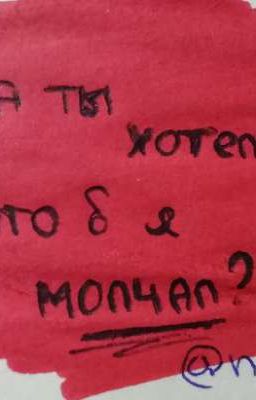 А ты
хотел
что б я
молчал?
@n